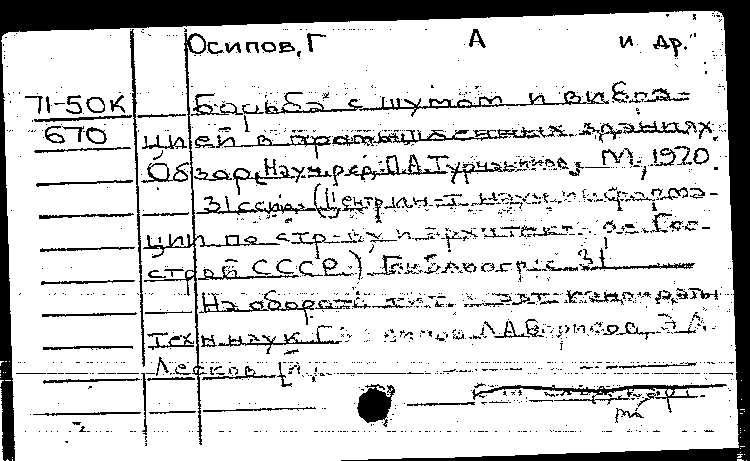 Осипов, Г А и др.
71-50К Борьба с шумом и вибра-
670 цией в промышленных зданиях.
Обзор. Науч. ред. Л.А. М., 1970.
31 с. (Центр. ин-т науч. информа-
ции по стр-ву и архитект. Гос-
строй СССР.) Библиогр.: с. 31
На обороте тит. л. авт. кандидаты
техн. наук Г. Осипов Л.А. Борисов, Э.Л.
Лесков